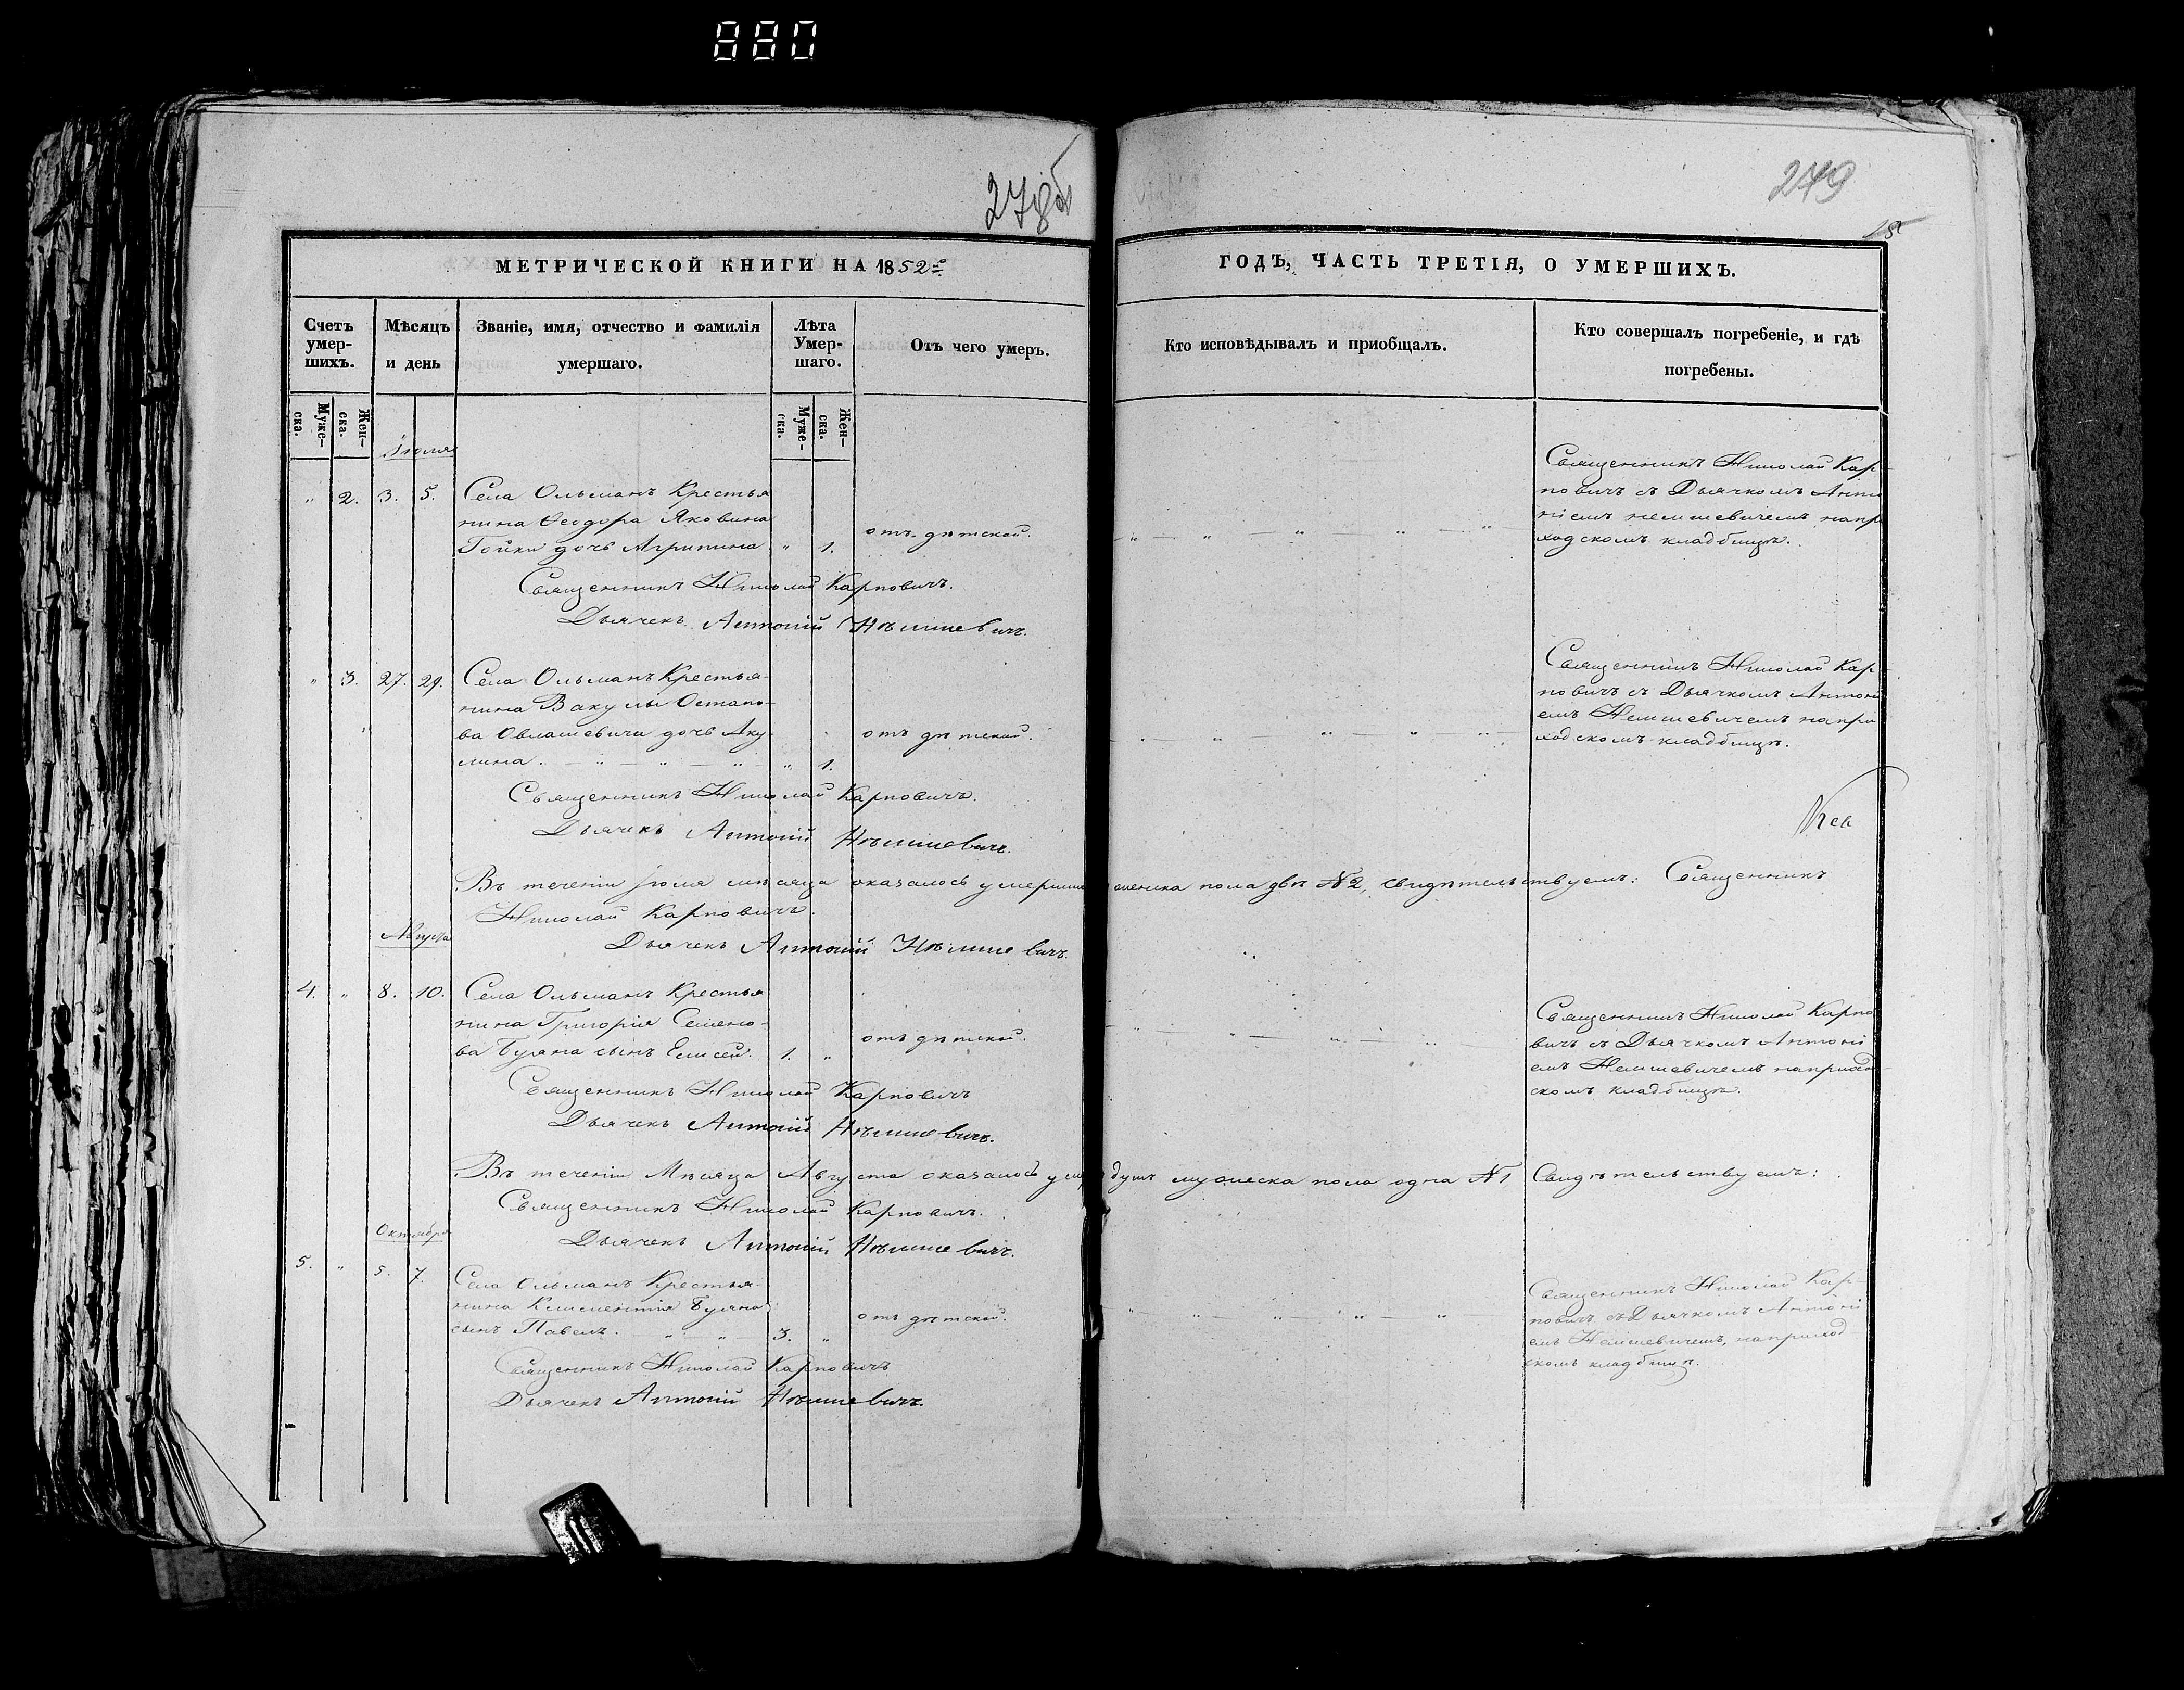 880
278об
279
МЕТРИЧЕСКОЙ КНИГИ НА 1852й
ГОДЪ, ЧАСТЬ ТРЕТІЯ, О УМЕРШИХЪ.
Счетъ умер-шихъ.
Мѣсяцъ и день
Званіе, имя, отчество и фамилія умершаго.
Лѣта Умер-шаго.
Отъ чего умеръ.
Кто исповѣдывалъ и пріобщалъ.
Кто совершалъ погребеніе, и гдѣ погребены.
Муже-ска.
Жен-ска.
Муже-ска.
Жен-ска.
Іюля
" 2. 3. 5. Села Ольманъ Крестья
нина Ѳеодора Яковина
Гойки дочь Агрипина " 1.
отъ дѣтской.
Священникъ Николай Кар-
повичъ съ Дьячкомъ Анто
ніемъ Немшевичемъ напри
ходскомъ кладбищѣ.
Священникъ Николай Карповичъ.
Дьячекъ Антоній Нѣмшевичъ.
" 3. 27. 29. Села Ольманъ Крестья-
нина Вакулы Остапо-
ва Овлашевича дочь Аку
лина. " 1.
отъ дѣтской.
Священникъ Николай Кар-
повичъ съ Дьячкомъ Антоні
емъ Немшевичемъ напри
ходскомъ кладбищѣ.
Священникъ Николай Карповичъ.
Дьячекъ Антоній Нѣмшевичъ.
Въ теченіи Іюля мѣсяца оказалось умерши женска пола двѣ №2, свидѣтельствуемъ: Священникъ
Николай Карповичъ.
Дьячекъ Антоній Нѣмшевичъ.
Августа
4. " 8. 10. Села Ольманъ Крестья
нина Григорія Семено-
ва Буяна сынъ Елисей. 1. "
отъ дѣтской.
Священникъ Николай Карпо
вичъ съ Дьячкомъ Антоні
емъ Немшевичемъ наприход
скомъ кладбищѣ.
Священникъ Николай Карповичъ
Дьячекъ Антоній Нѣмшевичъ.
Въ теченіи Мѣсяца Августа оказалось умер душъ мужеска пола одна №1 Свидѣтельствуемъ:
Священникъ Николай Карповичъ.
Дьячекъ Антоній Нѣмшевичъ.
Октября
5. " 5. 7. Села Ольманъ Крестья-
нина Климентія Буяна
сынъ Павелъ. 3. "
отъ дѣтской.
Священникъ Николай Кар-
повичъ съ Дьячкомъ Антоні
емъ Немшевичемъ, наприход
скомъ кладбищѣ.
Священникъ Николай Карповичъ
Дьячекъ Антоній Нѣмшевичъ.